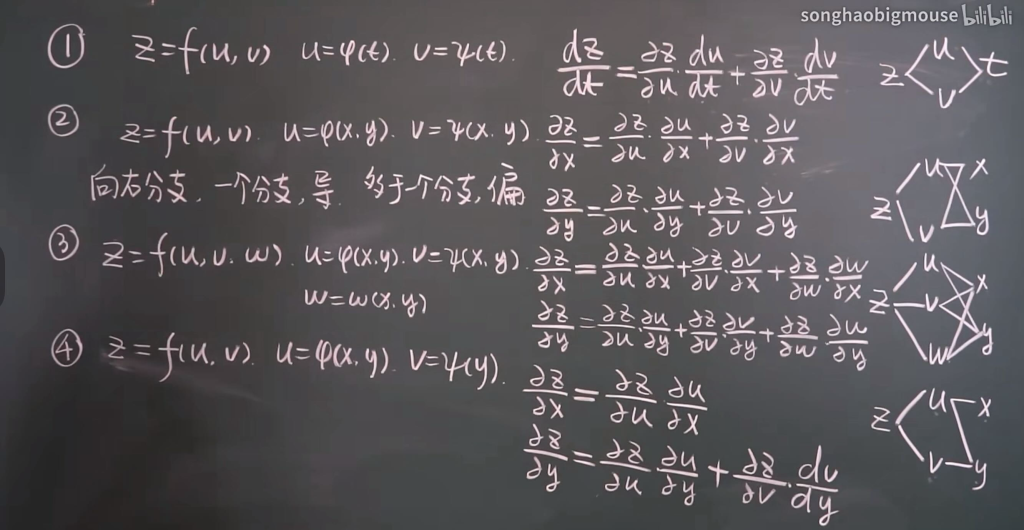 songhaobigmouse bilibili
① z=f(u,v) u=φ(t). v=ψ(t). dz/dt=∂z/∂u·du/dt+∂z/∂v·dv/dt z u v t
② z=f(u,v). u=φ(x.y). v=ψ(x.y) ∂z/∂x=∂z/∂u·∂u/∂x+∂z/∂v·∂v/∂x
向右分支.一个分支,导. 多于一个分支,偏 ∂z/∂y=∂z/∂u·∂u/∂y+∂z/∂v·∂v/∂y z u v x y
③ z=f(u,v.w). u=φ(x.y). v=ψ(x,y). ∂z/∂x=∂z/∂u ∂u/∂x+∂z/∂v ∂v/∂x+∂z/∂w·∂w/∂x
w=w(x,y) ∂z/∂y=∂z/∂u·∂u/∂y+∂z/∂v ∂v/∂y+∂z/∂w·∂w/∂y z u v w x y
④ z=f(u,v). u=φ(x,y). v=ψ(y). ∂z/∂x=∂z/∂u·∂u/∂x z u v x y
∂z/∂y=∂z/∂u·∂u/∂y+∂z/∂v·dv/dy